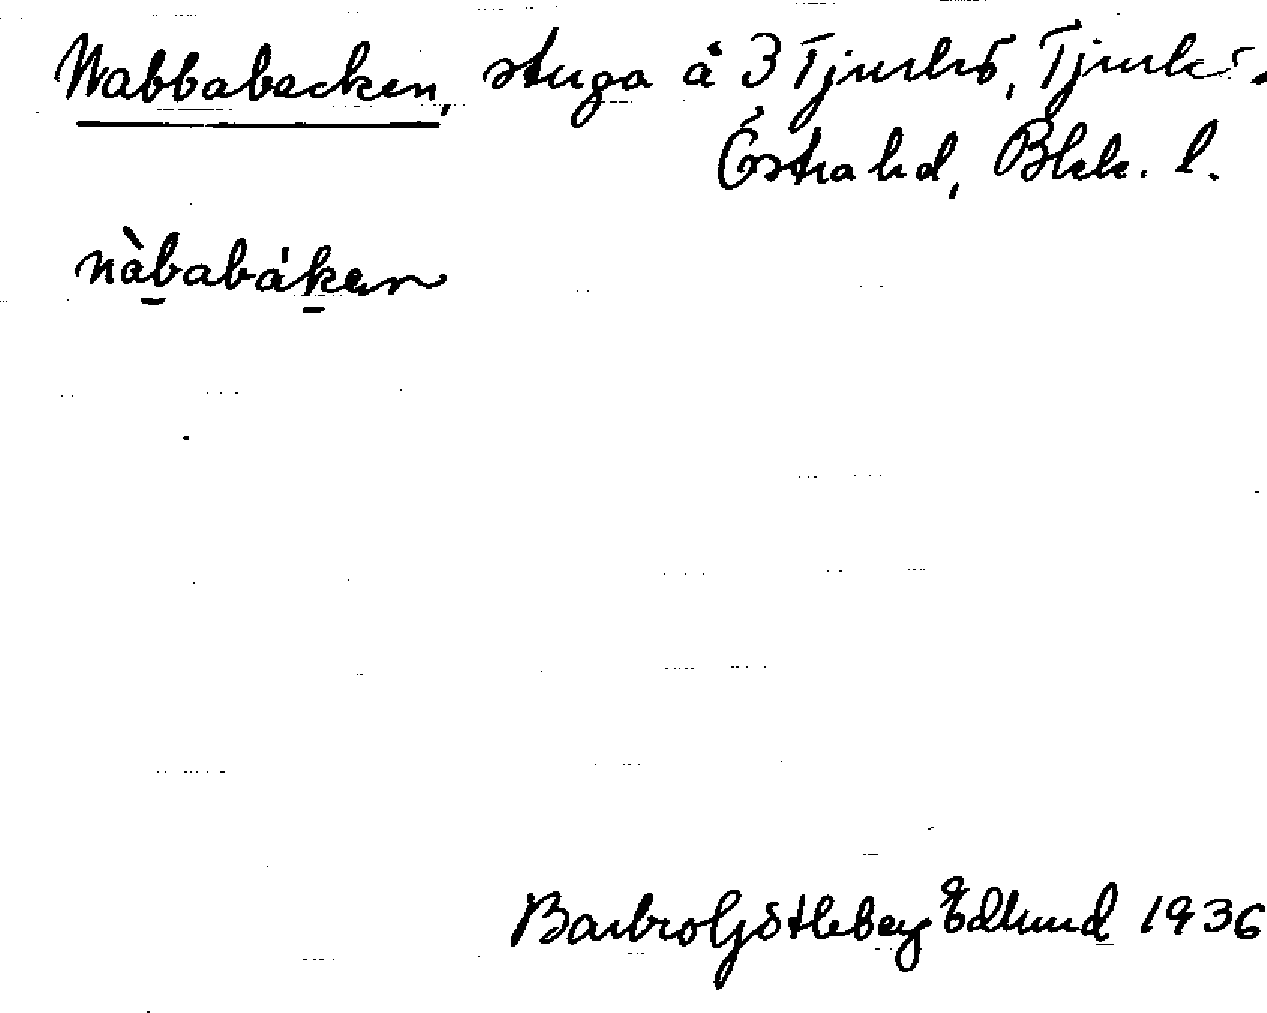 Nabbabacken, stuga å 3 Tjurkö, Tjurkö.
Östra hd, Blek. l.
nàbabákan
Barbro Götleborg Edlund 1936